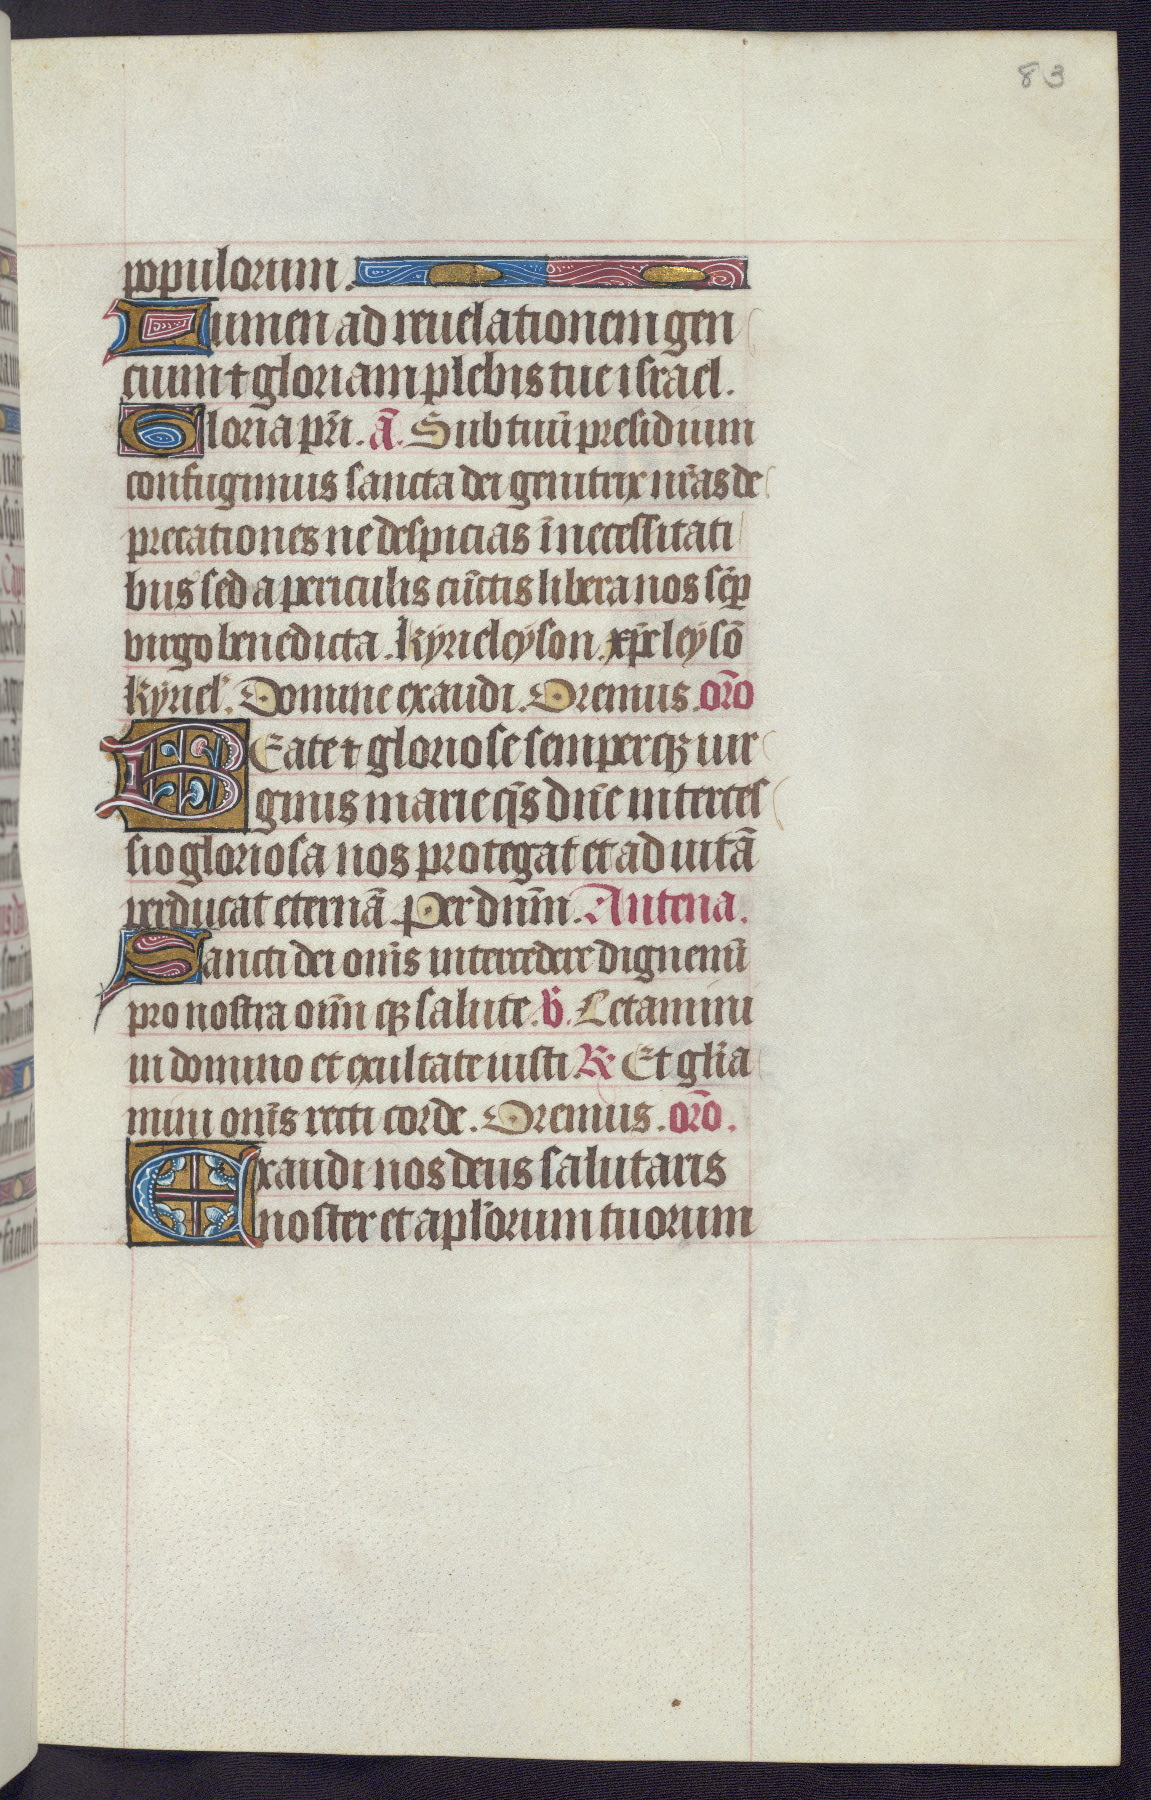 83
populorum.
Lumen ad reuelationem gen
cium ⁊ gloriam plebis tue israel.
Gloria pr̄i. ā. Sub tuū presidium
confugimus sancta dei genitrix nr̄as de
precationes ne despicias in necessitati
bus sed a periculis cūctis libera nos sēp
virgo benedicta. kyrieleyson. xp̄eleysō
kyriel'. Domine exaudi. Oremus. orō
Beate ⁊ gloriose semperqꝫ uir
ginis marie qs̄ dn̄e interces
sio gloriosa nos protegat et ad uitā
perducat eternā. Per dnm̄. Antena.
Sancti dei omīs intercedere dignemī
pro nostra omniūqꝫ salute. v̄. Letamini
in domino et exultate iusti ℟. Et glīa
mini omīs recti corde. Oremus. orō.
Exaudi nos deus salutaris
noster et apl'orum tuorum